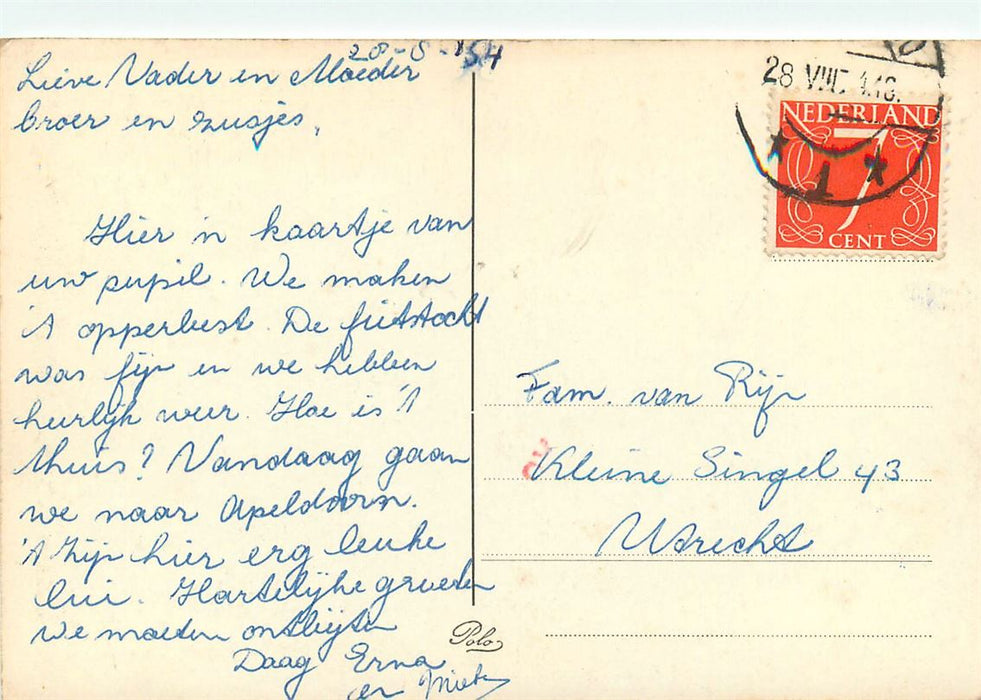 28-8-'54
Lieve Vader en Moeder
broer en zusjes,
Hier 'n kaartje van
uw pupil. We maken
't opperbest. De fietstocht
was fijn en we hebben
heerlijk weer. Hoe is 't
thuis? Vandaag gaan
we naar Apeldoorn.
't Zijn hier erg leuke
lui. Hartelijke groeten
we moeten ontbijten
Daag Erna
en
28 VIII
NEDERLAND
7
CENT
1
Fam. van Rijn
Kleine Singel 43
Utrecht
Polo